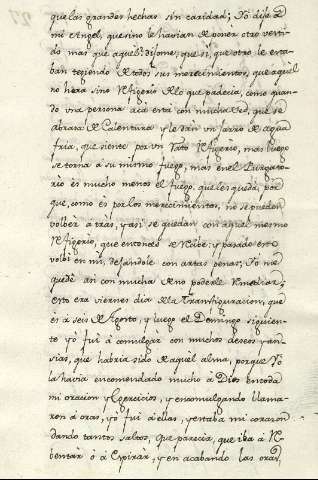 que las grandes hechas sin caridad; Yo dixe a
mi Angel, que sino le havian de poner otro verti-
do mas que aquel: dijome, que si, que otro le esta-
ban tegiendo de todos sus merecimientos, que aquel
no hera sino refigerio de lo que padecia, como quan-
do vna persona acà està con mucha sed, que se
abrasa de calentura y le dan vn jarro de agua
fria, que siente por vn rato refigerio, mas luego
se torna a su mismo fuego, mas en el Purgato-
rio es mucho menos el fuego, que les queda, por
que, como es por los merecimientos, no se pueden
volbèr a tràs, y asi se quedan con aquel mesmo
refigerio, que entonces reciben; y pasado esto
volbi en mi, dejandole con artas penas; Yo me
quedè asi con mucha de no poderle remediar;
esto era viernes dia de la Transfiguracion, que
ès a seis de Agosto, y luego el Domingo siguien-
te yò fui à comulgar con muchos deseos y an-
sias, que habria sido de aquel alma, porque Yo
la havia encomendado mucho à Dios en toda
mi oracion y exercicios, y en comulgando llama-
ron à oras, yò fui à ellas, y estaba mi corazon
dando tantos saltos, que parecia, que iba à re-
bentàr ò à espiràr, y en acabando las oras,